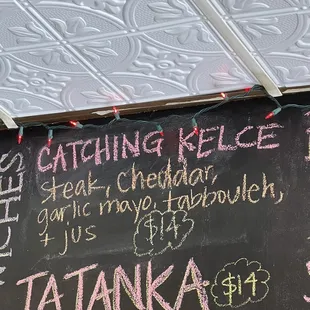 CATCHING KELCE
steak, Cheddar,
garlic mayo, tabbouleh,
+ jus
$14
TATANKA $14